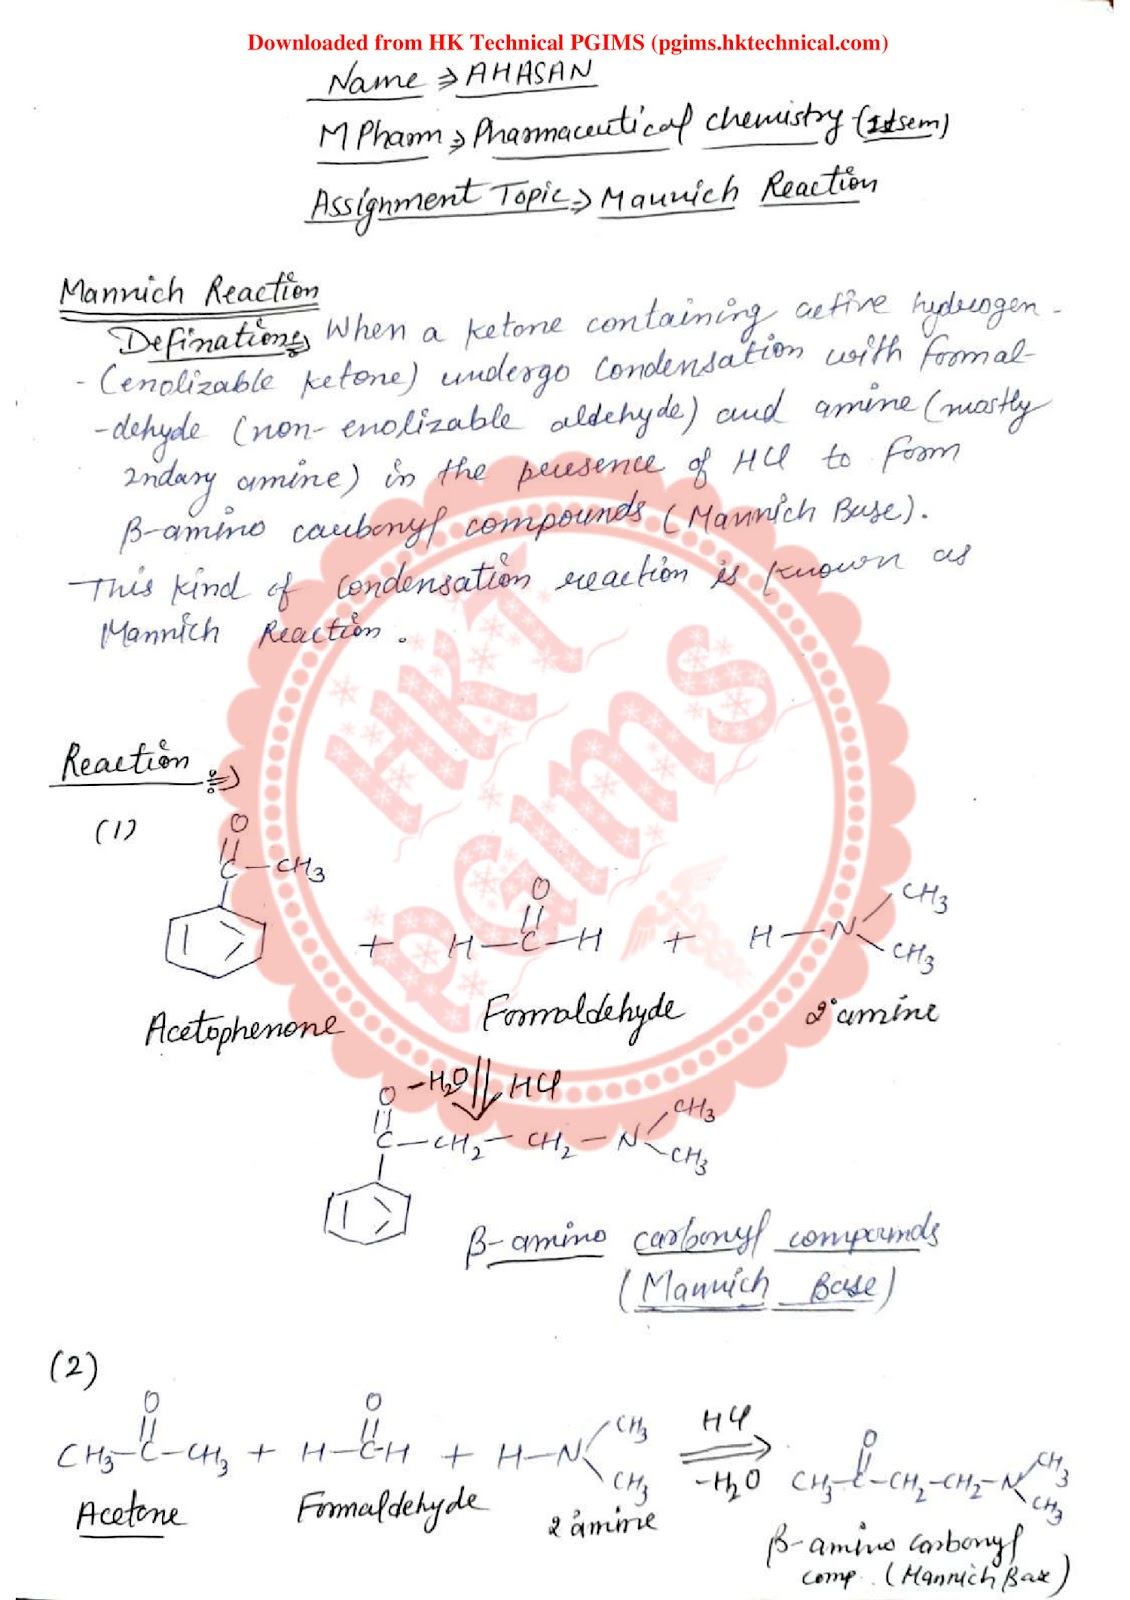 Downloaded from HK Technical PGIMS (pgims.hktechnical.com)
Name ⇒ AHASAN
M Pharm ⇒ Pharmaceutical chemistry (1st sem)
Assignment Topic ⇒ Mannich Reaction
Mannich Reaction
Defination ⇒ When a ketone containing active hydrogen -
- (enolizable ketone) undergo condensation with formal-
-dehyde (non-enolizable aldehyde) and amine (mostly
2ndary amine) in the presence of HCl to form
β-amino carbonyl compounds (Mannich Base).
This kind of condensation reaction is known as
Mannich Reaction.
HKT
PGIMS
Reaction ⇒
(1)
O
C-CH3
+ H-C-H + H-N
O
CH3
CH3
Acetophenone Formaldehyde 2° amine
-H2O HCl
O
C-CH2-CH2-N
CH3
CH3
β-amino carbonyl compounds
(Mannich Base)
(2)
O O CH3 HCl O CH3
CH3-C-CH3 + H-C-H + H-N ⇒ CH3-C-CH2-CH2-N
CH3 -H2O CH3
Acetone Formaldehyde 2° amine
β-amino carbonyl
comp. (Mannich Base)